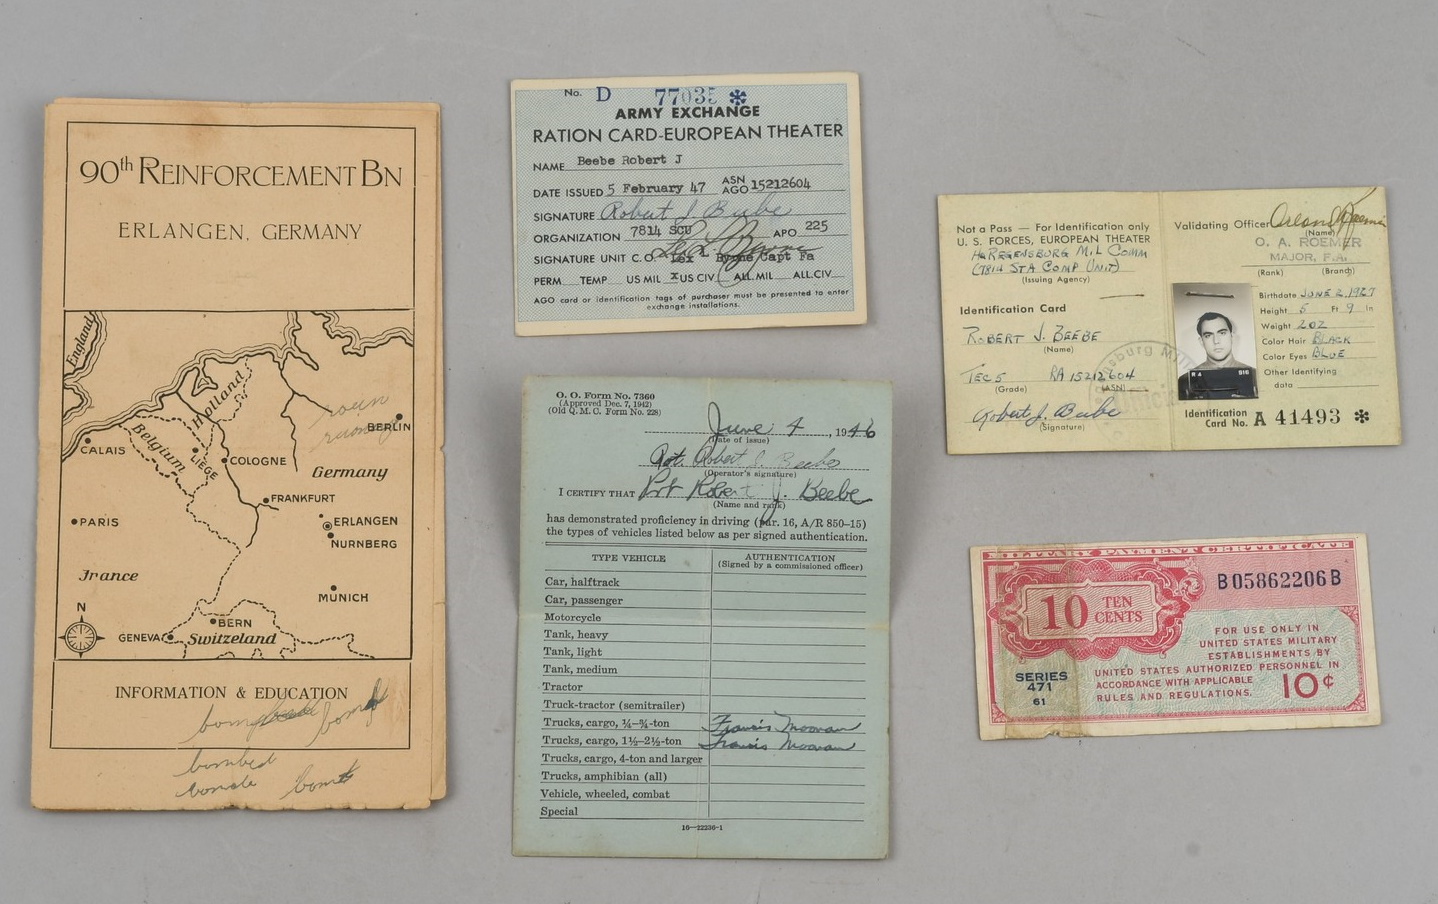 90th REINFORCEMENT BN
ERLANGEN, GERMANY
England
Holland
BERLIN
Belgium
CALAIS
LIÉGE
COLOGNE
Germany
FRANKFURT
PARIS
ERLANGEN
NURNBERG
France
MUNICH
N
BERN
GENEVA
Switzeland
INFORMATION & EDUCATION
bombed
No. D 77035 *
ARMY EXCHANGE
RATION CARD-EUROPEAN THEATER
NAME Beebe Robert J
DATE ISSUED 5 February 47 ASN AGO 15212604
SIGNATURE Robert J. Beebe
ORGANIZATION 7814 SCU APO 225
SIGNATURE UNIT C.O. Lex L Byrne Capt Fa
PERM TEMP US MIL X US CIV ALL.MIL ALL.CIV
AGO card or identification tags of purchaser must be presented to enter
exchange installations.
O. O. Form No. 7360
(Approved Dec. 7, 1942)
(Old Q. M. C. Form No. 228)
June 4, 1946
(Date of issue)
Pvt. Robert J. Beebe
(Operator's signature)
I CERTIFY THAT Pvt Robert J. Beebe
(Name and rank)
has demonstrated proficiency in driving (par. 16, A/R 850-15)
the types of vehicles listed below as per signed authentication.
TYPE VEHICLE AUTHENTICATION
(Signed by a commissioned officer)
Car, halftrack
Car, passenger
Motorcycle
Tank, heavy
Tank, light
Tank, medium
Tractor
Truck-tractor (semitrailer)
Trucks, cargo, ¼-¾-ton Francis Moovan
Trucks, cargo, 1½-2½-ton Francis Moovan
Trucks, cargo, 4-ton and larger
Trucks, amphibian (all)
Vehicle, wheeled, combat
Special
16—22236-1
Not a Pass — For Identification only
U. S. FORCES, EUROPEAN THEATER
Hq REGENSBURG MIL COMM
(7814 STA COMP UNIT)
(Issuing Agency)
Identification Card
ROBERT J. BEEBE
(Name)
TEC 5 RA 15212604
(Grade) (ASN)
Robert J. Beebe
(Signature)
Validating Officer
(Name)
O. A. ROEMER
MAJOR, F.A.
(Rank) (Branch)
Birthdate JUNE 2, 1927
Height 5 Ft 9 in
Weight 202
Color Hair BLACK
Color Eyes BLUE
Other Identifying
data
Identification
Card No. A 41493 *
MILITARY PAYMENT CERTIFICATE
B05862206B
10 TEN CENTS
FOR USE ONLY IN
UNITED STATES MILITARY
ESTABLISHMENTS BY
UNITED STATES AUTHORIZED PERSONNEL IN
ACCORDANCE WITH APPLICABLE
RULES AND REGULATIONS.
SERIES
471
61
10¢